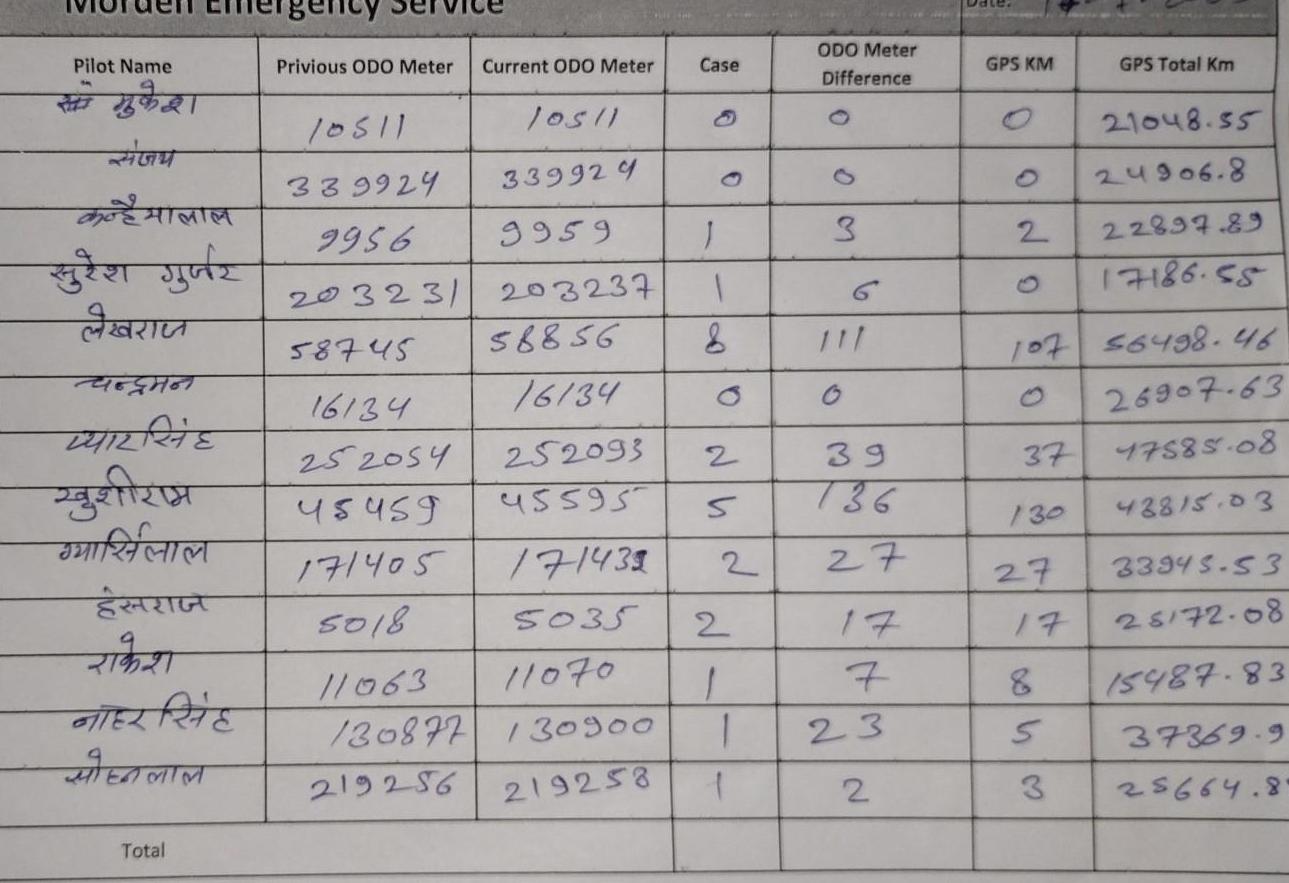 Morden Emergency Service
Date:
Pilot Name Privious ODO Meter Current ODO Meter Case ODO Meter Difference GPS KM GPS Total Km
मुकेश 10511 10511 0 0 0 21048.55
संजय 339924 339924 0 0 0 24906.8
कन्हैयालाल 9956 9959 1 3 2 22897.89
सुरेश गुर्जर 203231 203237 1 6 0 17186.55
लेखराज 58745 58856 8 111 107 56498.46
चन्द्रमन 16134 16134 0 0 0 26907.63
प्यार सिंह 252054 252093 2 39 37 47585.08
खुशीराम 45459 45595 5 136 130 43815.03
ग्यार्सिलाल 171405 171432 2 27 27 33945.53
हंसराज 5018 5035 2 17 17 25172.08
राकेश 11063 11070 1 7 8 15487.83
नाहर सिंह 130877 130900 1 23 5 37369.9
सोहनलाल 219256 219258 1 2 3 25664.8
Total